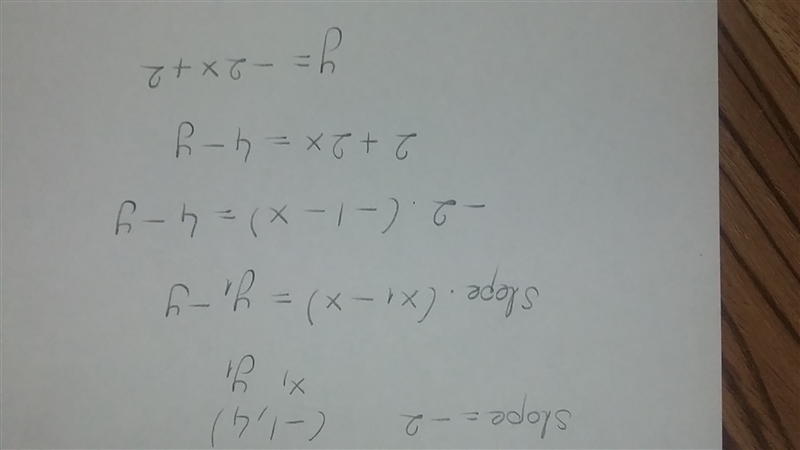 Slope = -2 (-1, 4)
x₁ y₁
Slope · (x₁ - x) = y₁ - y
-2 · (-1 - x) = 4 - y
2 + 2x = 4 - y
y = -2x + 2